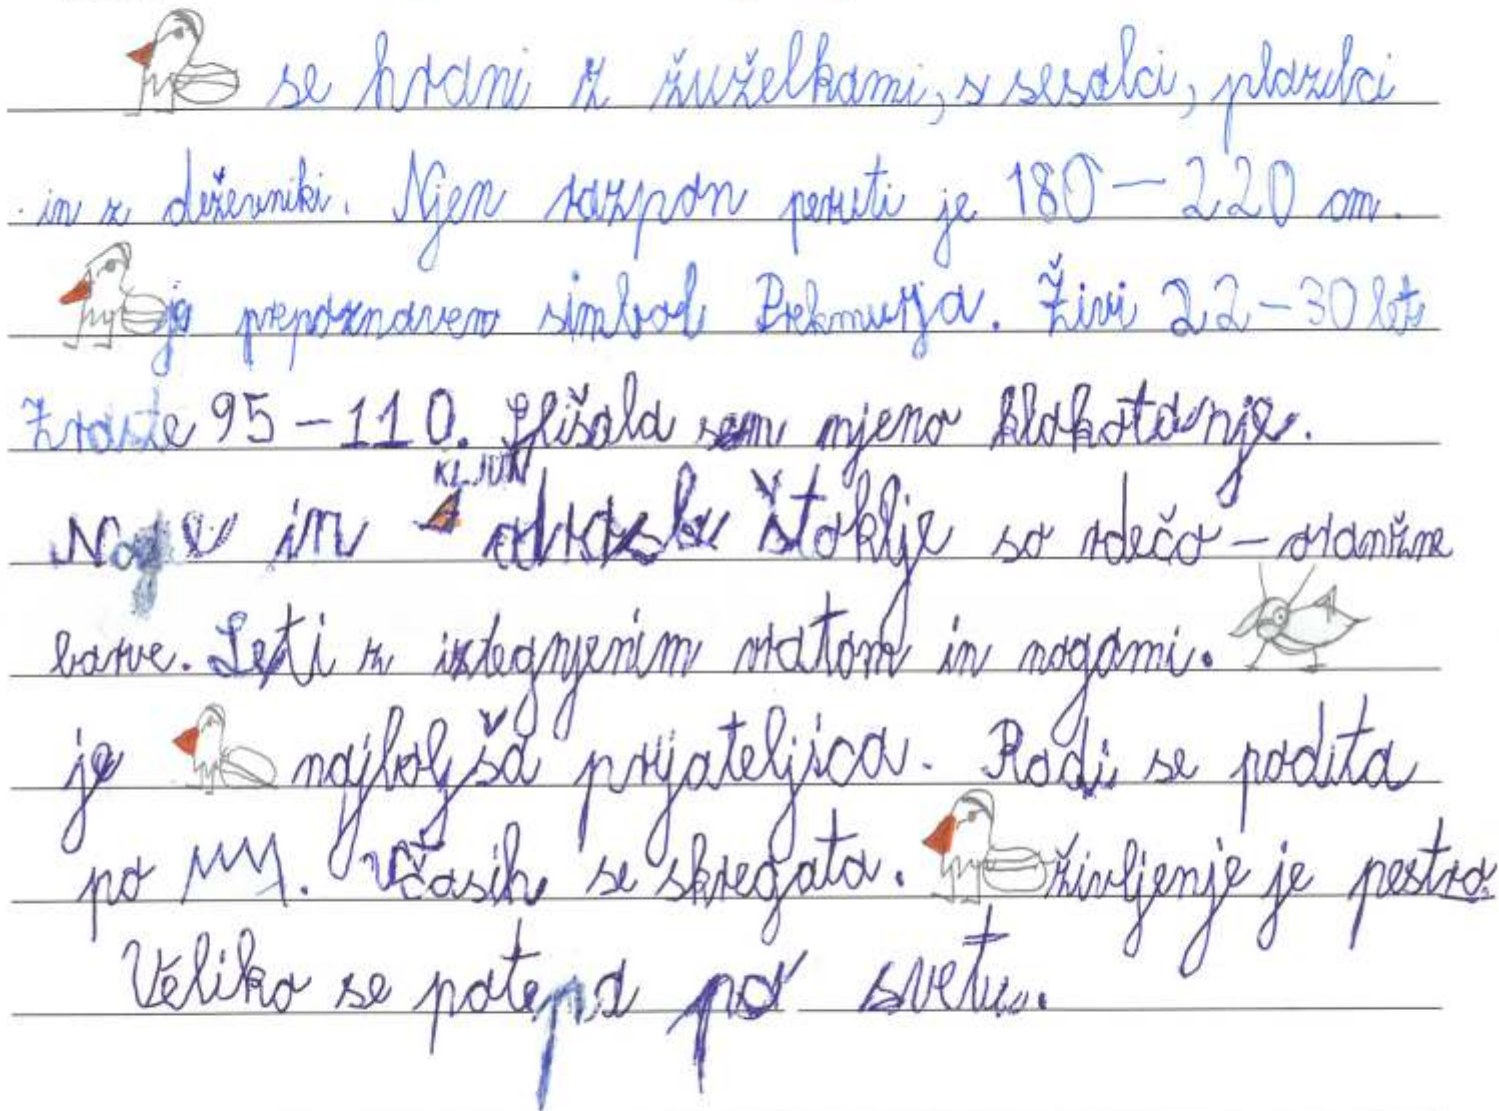 se hrani z žuželkami, s sesalci, plazilci
in z deževniki. Njen razpon peruti je 180-220 cm.
je prepoznaven simbol Prekmurja. Živi 22-30 let
Zraste 95-110. Slišala sem njeno klokotanje.
KLJUN
Noge in odrasle štoklje so rdečo-oranžne
barve. Leti z iztegnjenim vratom in nogami.
je najboljša prijateljica. Radi se podita
po. Včasih se skregata. življenje je pestro.
Veliko se potepa po svetu.